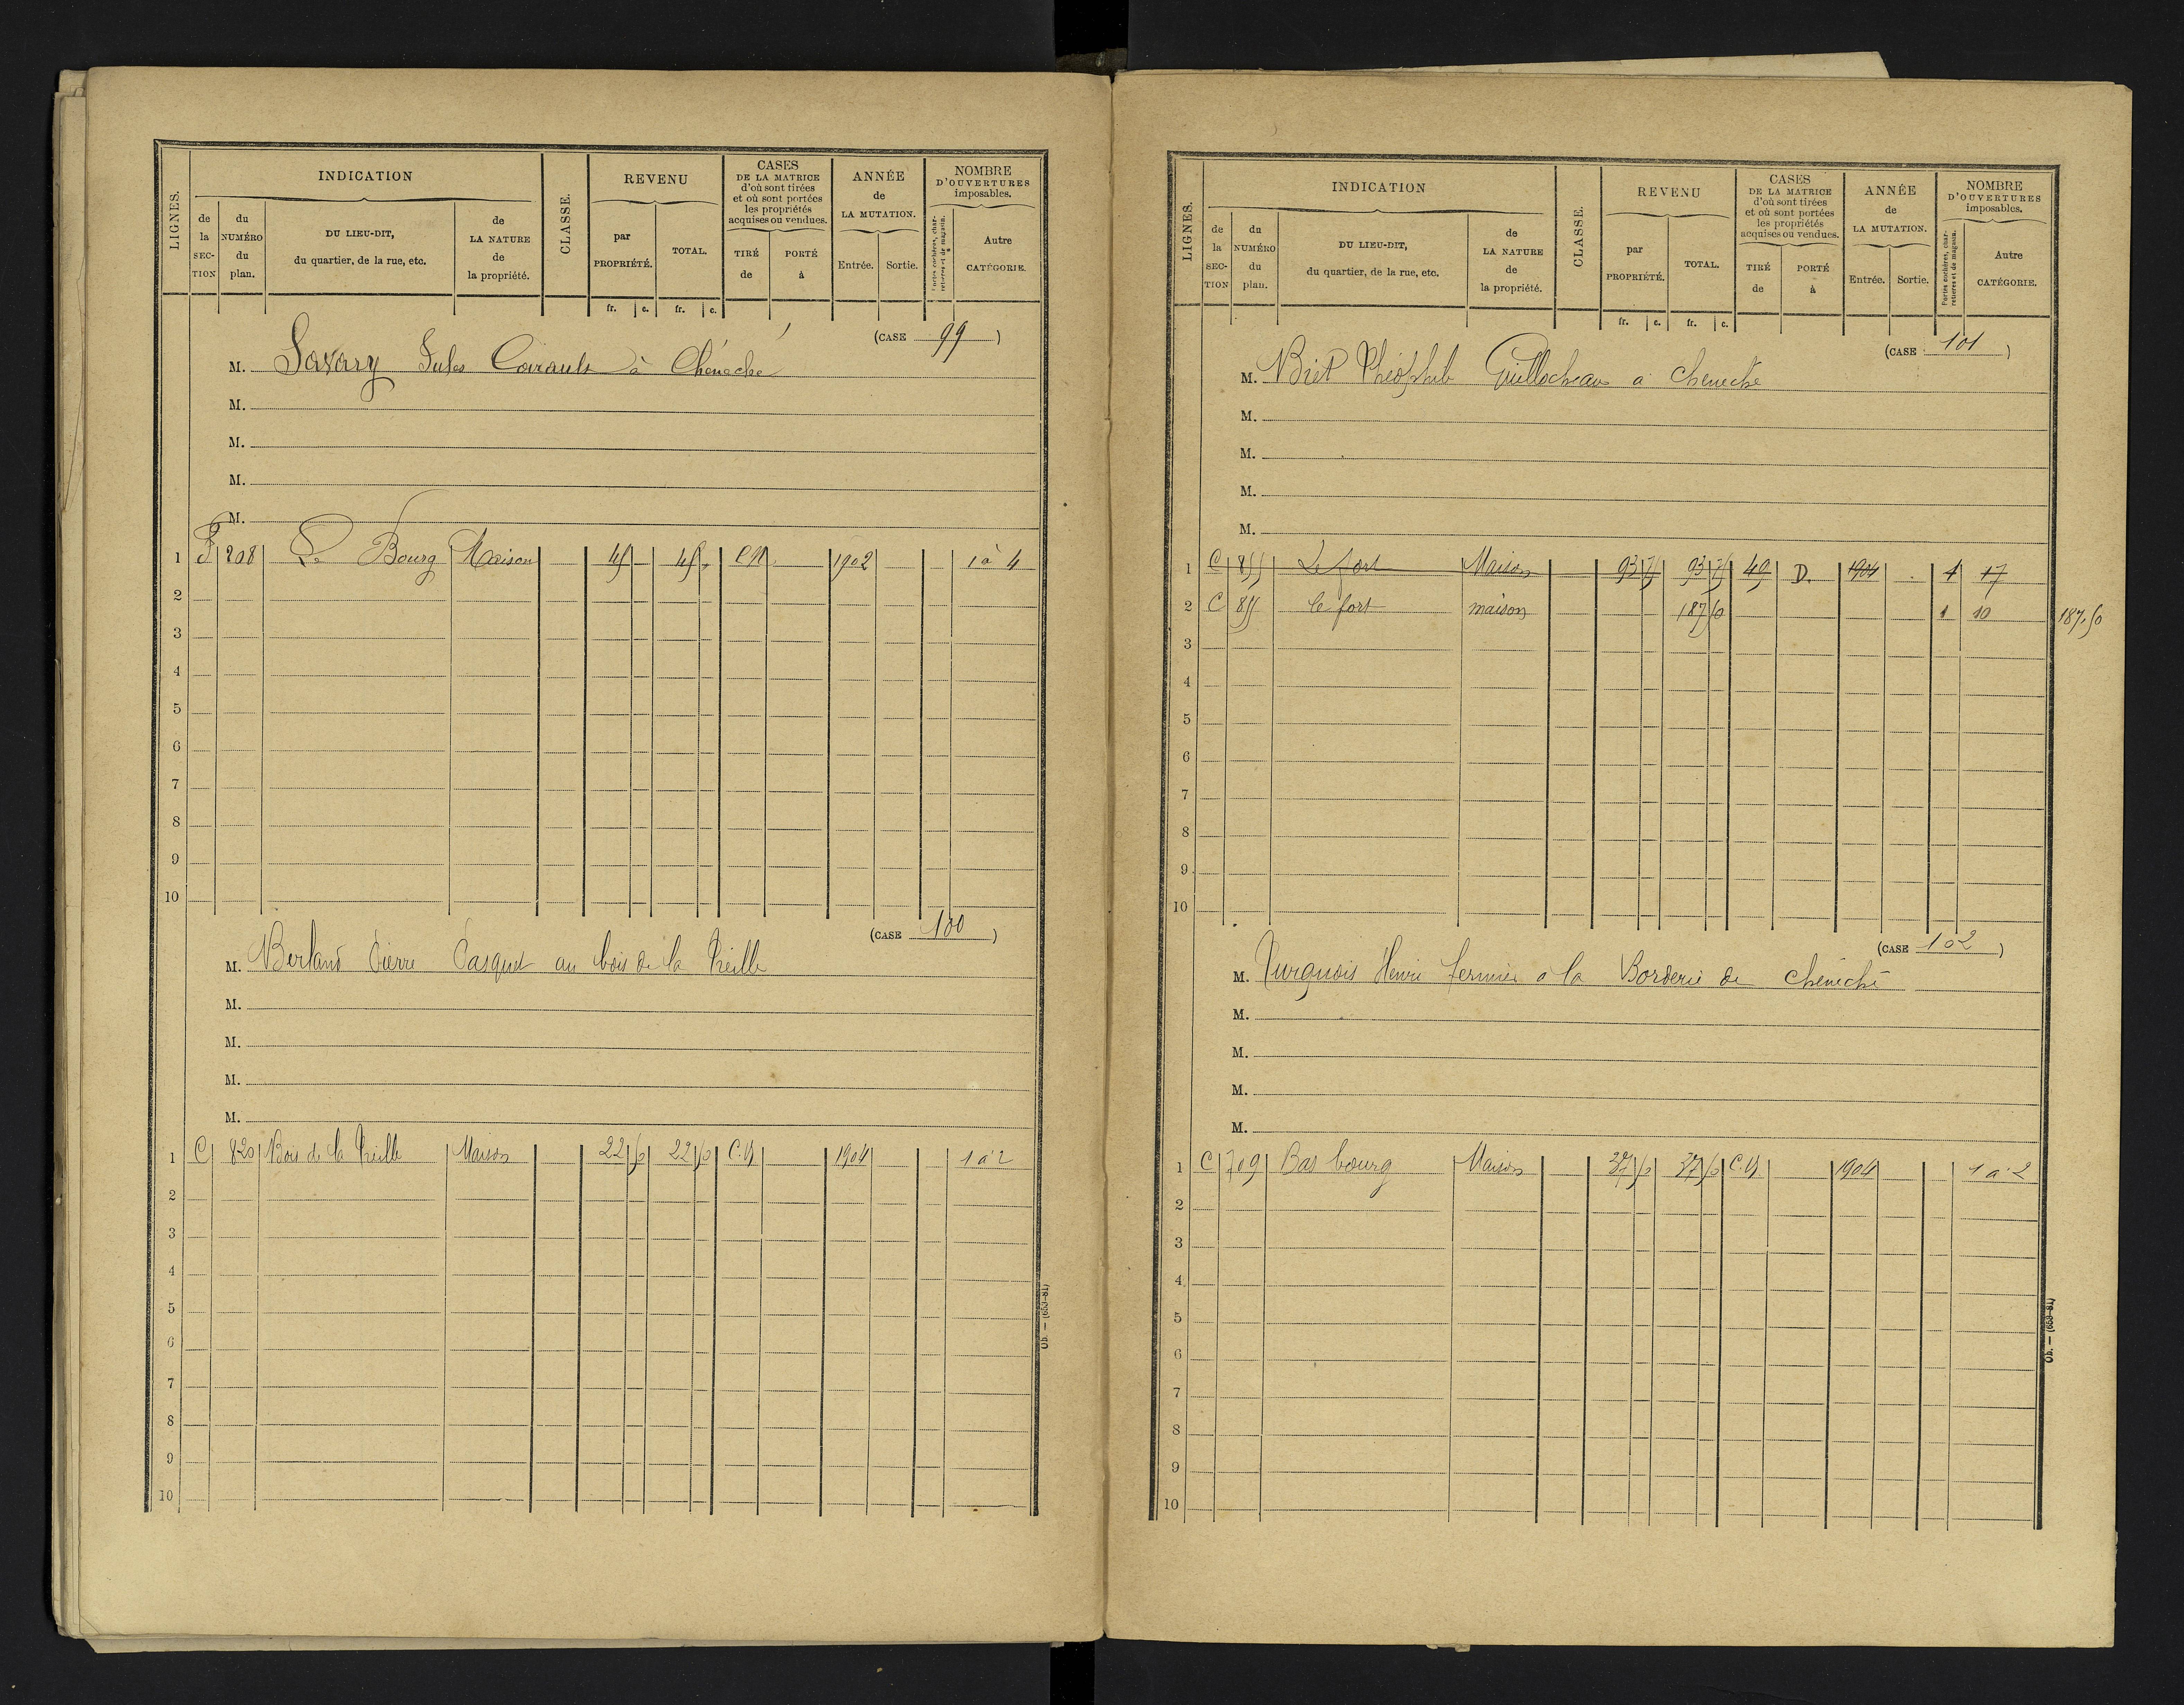 LIGNES.
INDICATION
de la SECTION
du NUMÉRO du plan.
DU LIEU-DIT, du quartier, de la rue, etc.
de LA NATURE de la propriété.
CLASSE.
REVENU
par PROPRIÉTÉ.
TOTAL.
fr. c. fr. c.
CASES DE LA MATRICE d'où sont tirées et où sont portées les propriétés acquises ou vendues.
TIRÉ de
PORTÉ à
ANNÉE de LA MUTATION.
Entrée. Sortie.
NOMBRE D'OUVERTURES imposables.
Portes cochères, charretières et de magasin.
Autre CATÉGORIE.
(CASE 99)
M. Savary Jules à Chéneché
M.
M.
M.
M.
1 208 Le Bourg Maison 45 45 C.N. 1902 1 à 4
2
3
4
5
6
7
8
9
10
(CASE 100)
M. Berland Pierre Pasquet au bois de la
M.
M.
M.
M.
1 C 820 Bois de la Maison 22 50 22 50 C.N. 1904 1 à 2
2
3
4
5
6
7
8
9
10
Ob. — (653-81)
LIGNES.
INDICATION
de la SECTION
du NUMÉRO du plan.
DU LIEU-DIT, du quartier, de la rue, etc.
de LA NATURE de la propriété.
CLASSE.
REVENU
par PROPRIÉTÉ.
TOTAL.
fr. c. fr. c.
CASES DE LA MATRICE d'où sont tirées et où sont portées les propriétés acquises ou vendues.
TIRÉ de
PORTÉ à
ANNÉE de LA MUTATION.
Entrée. Sortie.
NOMBRE D'OUVERTURES imposables.
Portes cochères, charretières et de magasin.
Autre CATÉGORIE.
(CASE 101)
M. Biet Théophile Guillocheau à Cheneché
M.
M.
M.
M.
1 C 855 Le fort Maison 93 75 93 75 49 D. 1904 1 17
2 C 855 le fort maison 187 50 1 10 187.50
3
4
5
6
7
8
9
10
(CASE 102)
M. Henri fermier a la Borderie de Chéneché
M.
M.
M.
M.
1 C 709 Bas bourg Maison 37 50 37 50 C.N. 1904 1 à 2
2
3
4
5
6
7
8
9
10
Ob. — (653-81)